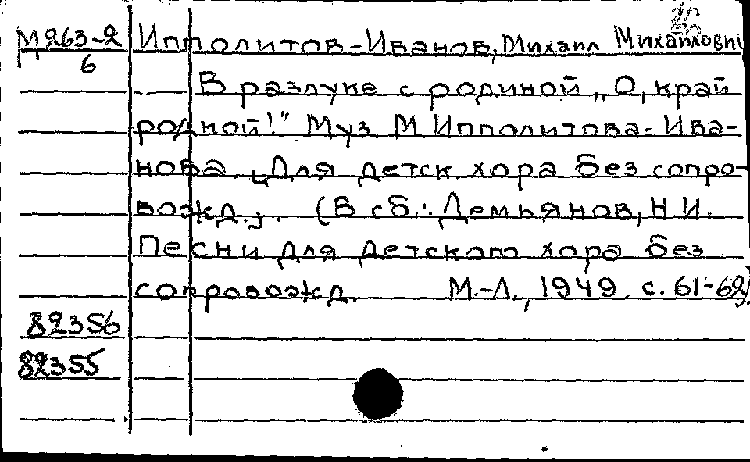 М263-2 Ипполитов-Иванов, Михаил Михайлович
6
В разлуке с родиной „О, край
родной!" Муз М Ипполитова-Ива-
нова. „Для детск хора без сопро-
вожд.„. (В сб.: Демьянов, Н И.
Песни для детского хора без
сопровожд. М.-Л., 1949 с. 61-62).
82356
82355